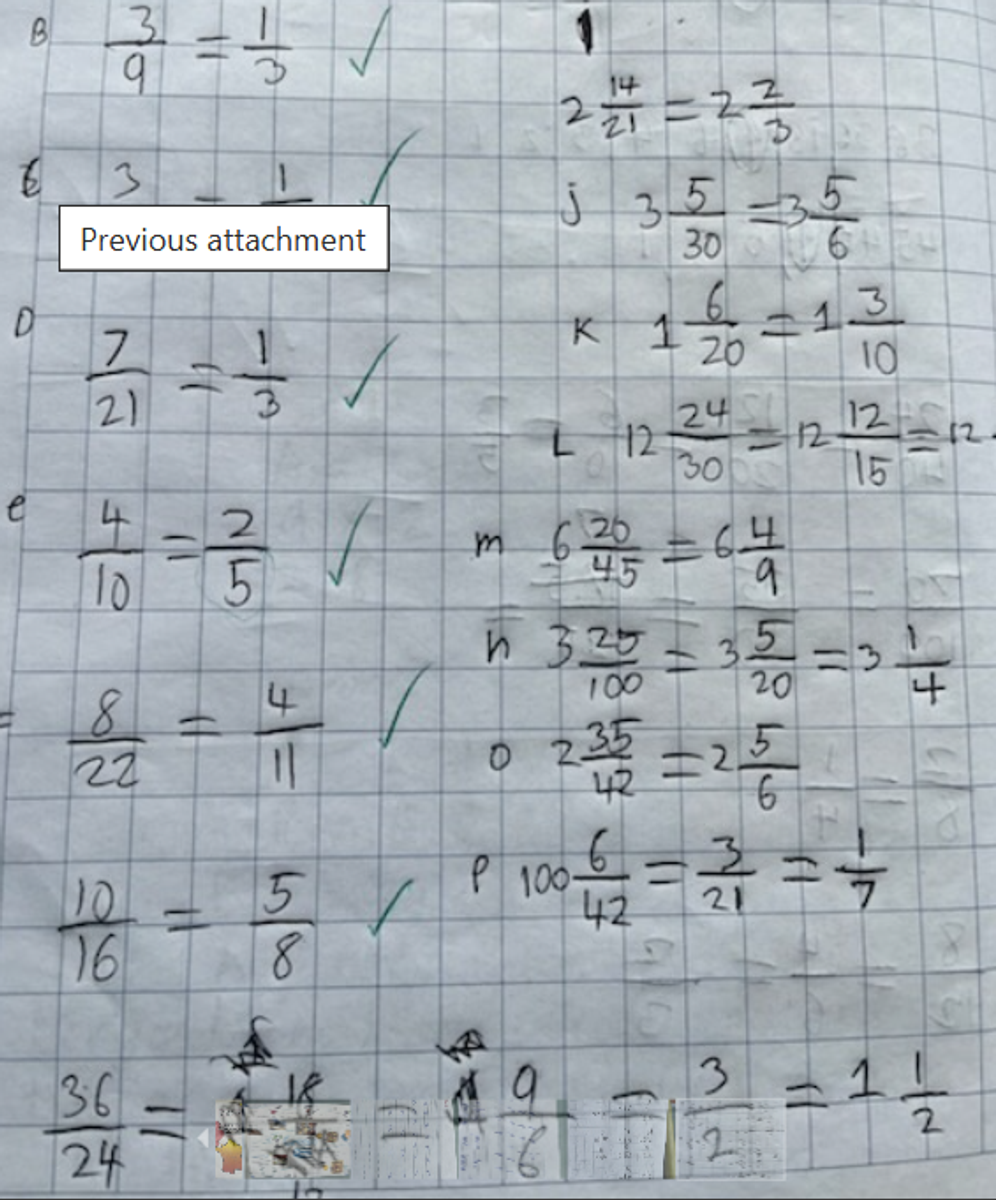 B 3/9 = 1/3 ✓
3 = 1 ✓
Previous attachment
D 7/21 = 1/3 ✓
e 4/10 = 2/5 ✓
= 8/22 = 4/11 ✓
10/16 = 5/8 ✓
36/24 = 18/12 = 9/6 = 3/2 = 1 1/2
2 14/21 = 2 2/3
j 3 5/30 = 3 5/6
K 1 6/20 = 1 3/10
L 12 24/30 = 12 12/15 = 12
m 6 20/45 = 6 4/9
n 3 25/100 = 3 5/20 = 3 1/4
o 2 35/42 = 2 5/6
P 100 6/42 = 3/21 = 1/7